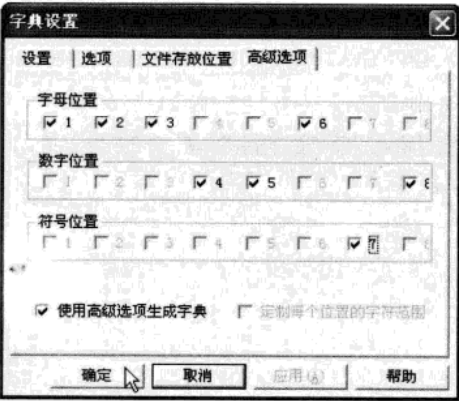 字典设置
设置 选项 文件存放位置 高级选项
字母位置
1 2 3 4 5 6 7 8
数字位置
1 2 3 4 5 6 7 8
符号位置
1 2 3 4 5 6 7 8
使用高级选项生成字典 定制每个位置的字符范围
确定 取消 应用(A) 帮助